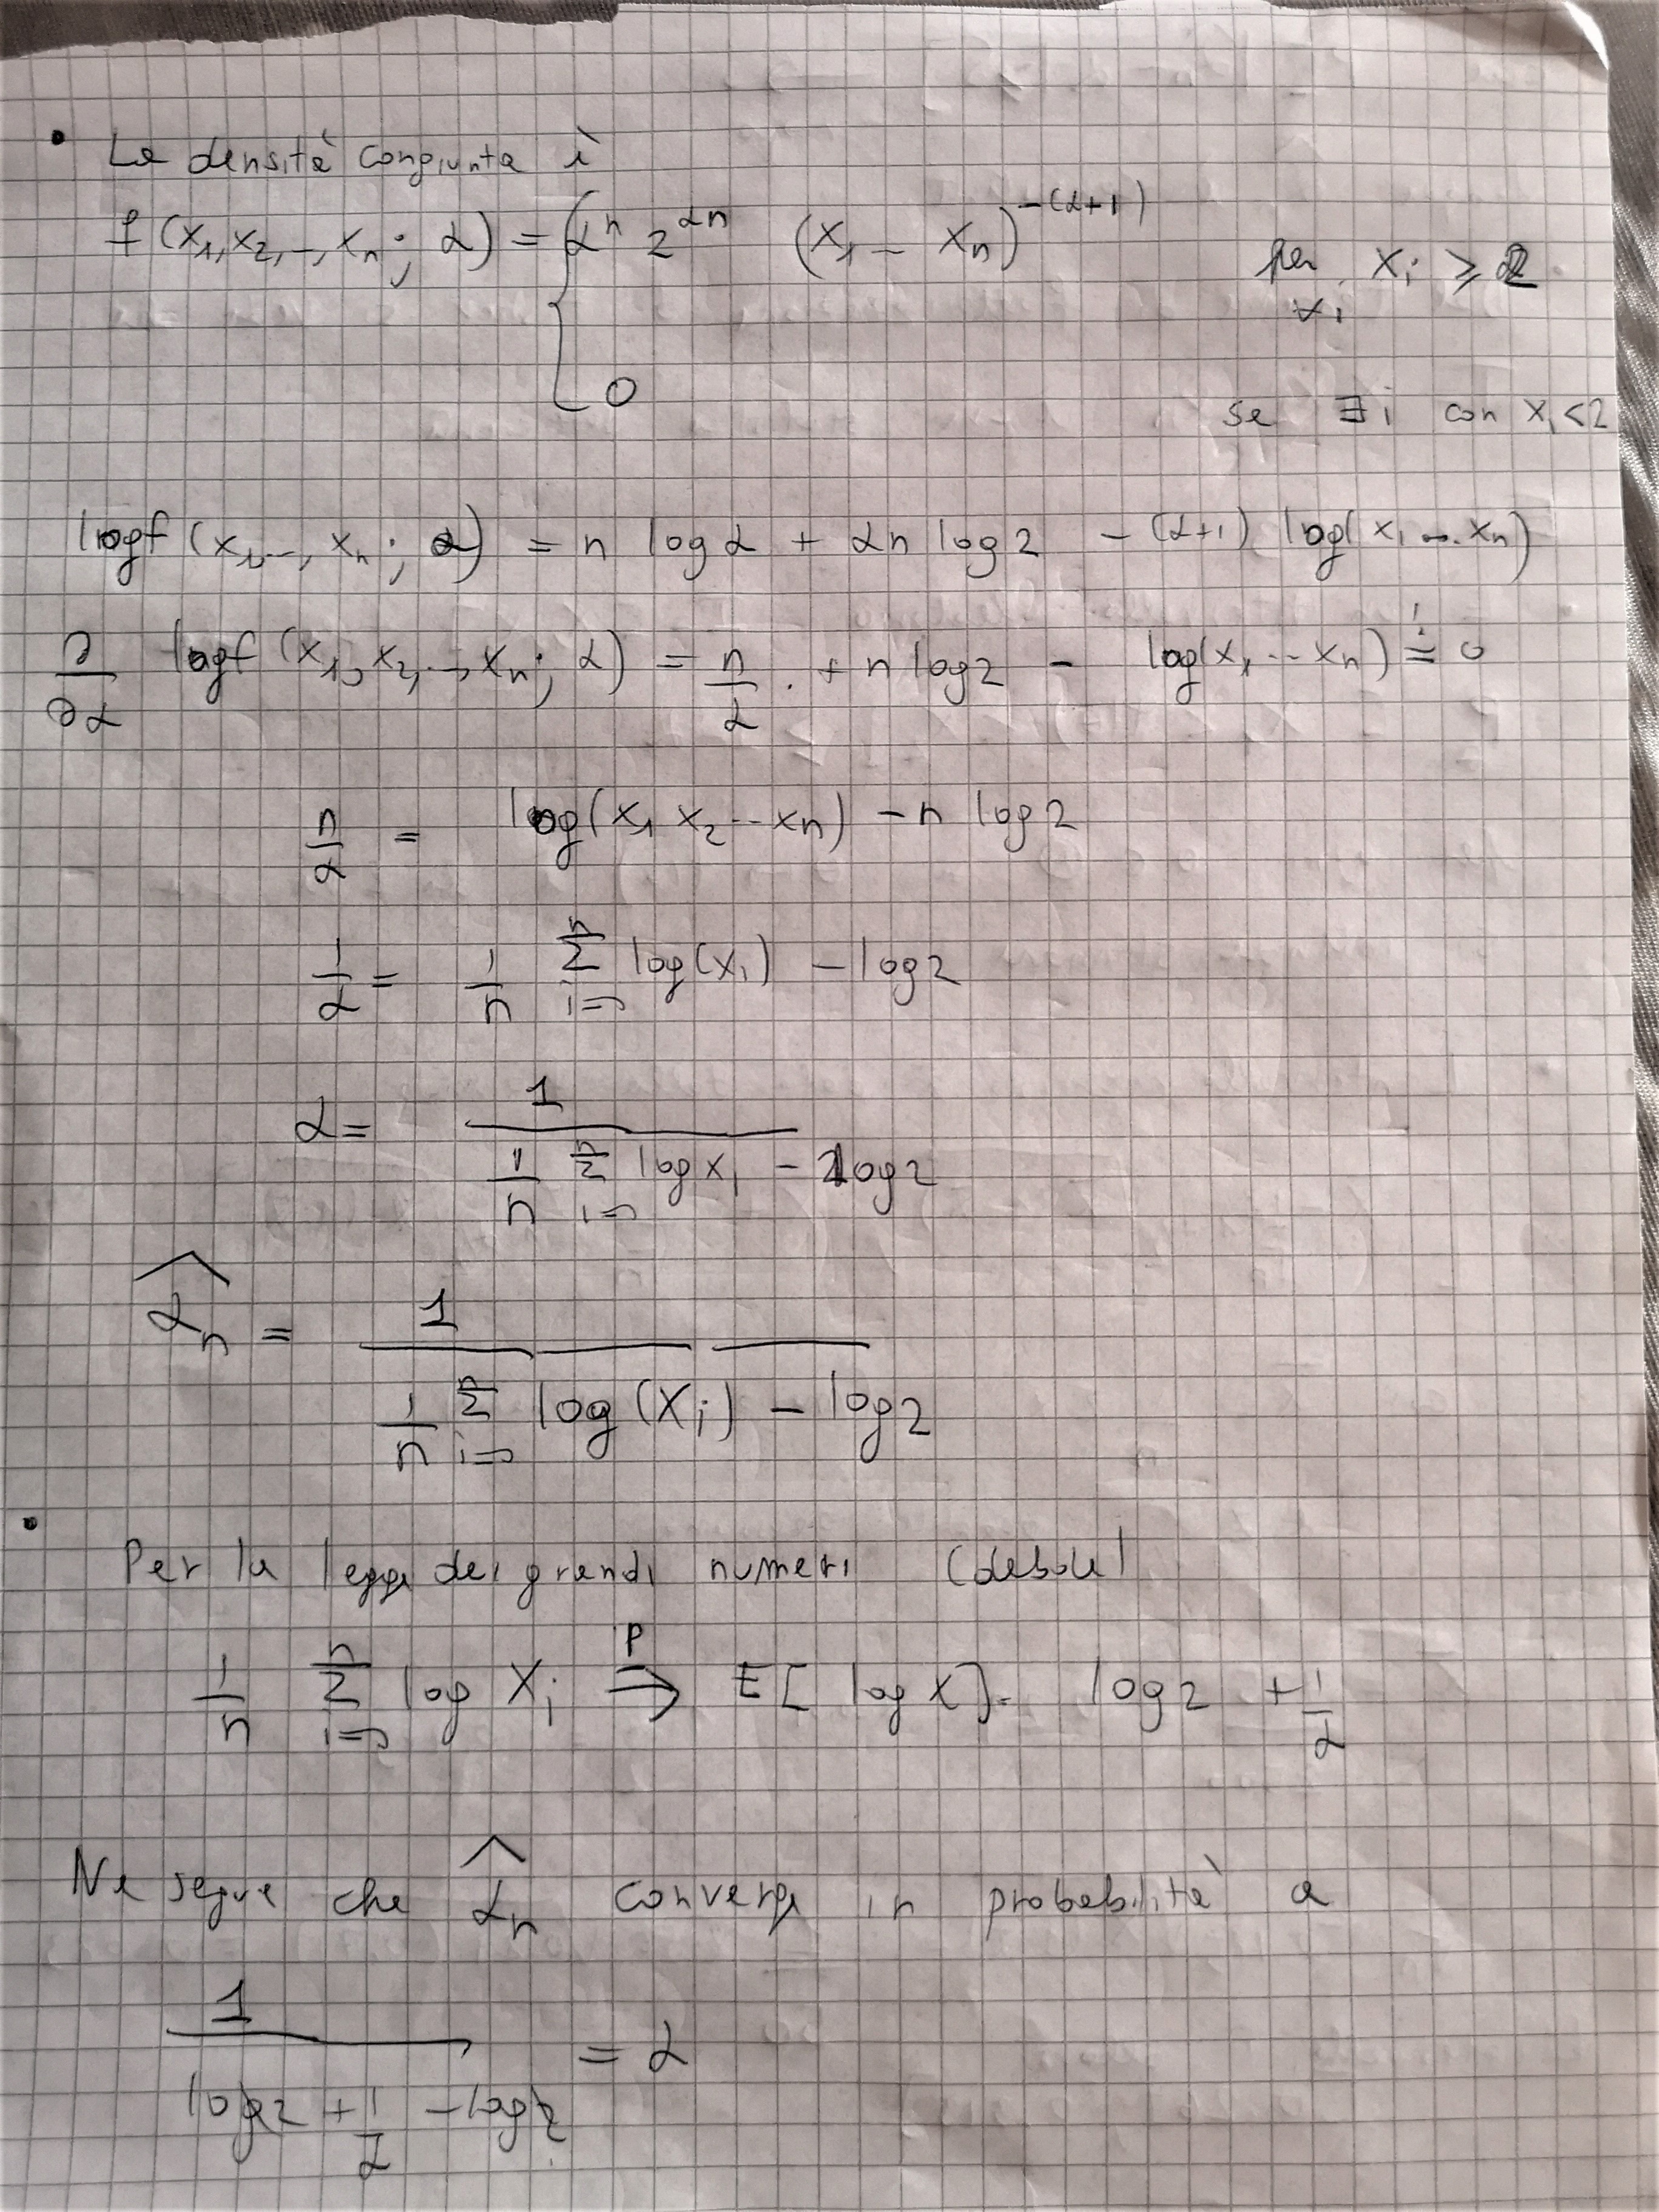 • La densità congiunta è
f(x₁,x₂,-,xₙ; α) = { αⁿ 2^{αn} (x₁ - xₙ)^{-(α+1)} per xᵢ ≥ 2
∀i
0 se ∃i con xᵢ<2
log f (x₁,..., xₙ; α) = n log α + αn log 2 - (α+1) log(x₁ ... xₙ)
∂/∂α log f (x₁, x₂, .., xₙ; α) = n/α + n log 2 - log(x₁ ... xₙ) =! 0
n/α = log(x₁ x₂ ... xₙ) - n log 2
1/α = 1/n Σ_{i=1}^{n} log(xᵢ) - log 2
α = 1 / (1/n Σ_{i=1}^{n} log xᵢ - log 2)
α̂ₙ = 1 / (1/n Σ_{i=1}^{n} log(Xᵢ) - log 2)
• Per la legge dei grandi numeri (debole)
1/n Σ_{i=1}^{n} log Xᵢ ⇒^P E[log X] = log 2 + 1/α
Ne segue che α̂ₙ converge in probabilità a
1 / (log 2 + 1/α - log 2) = α